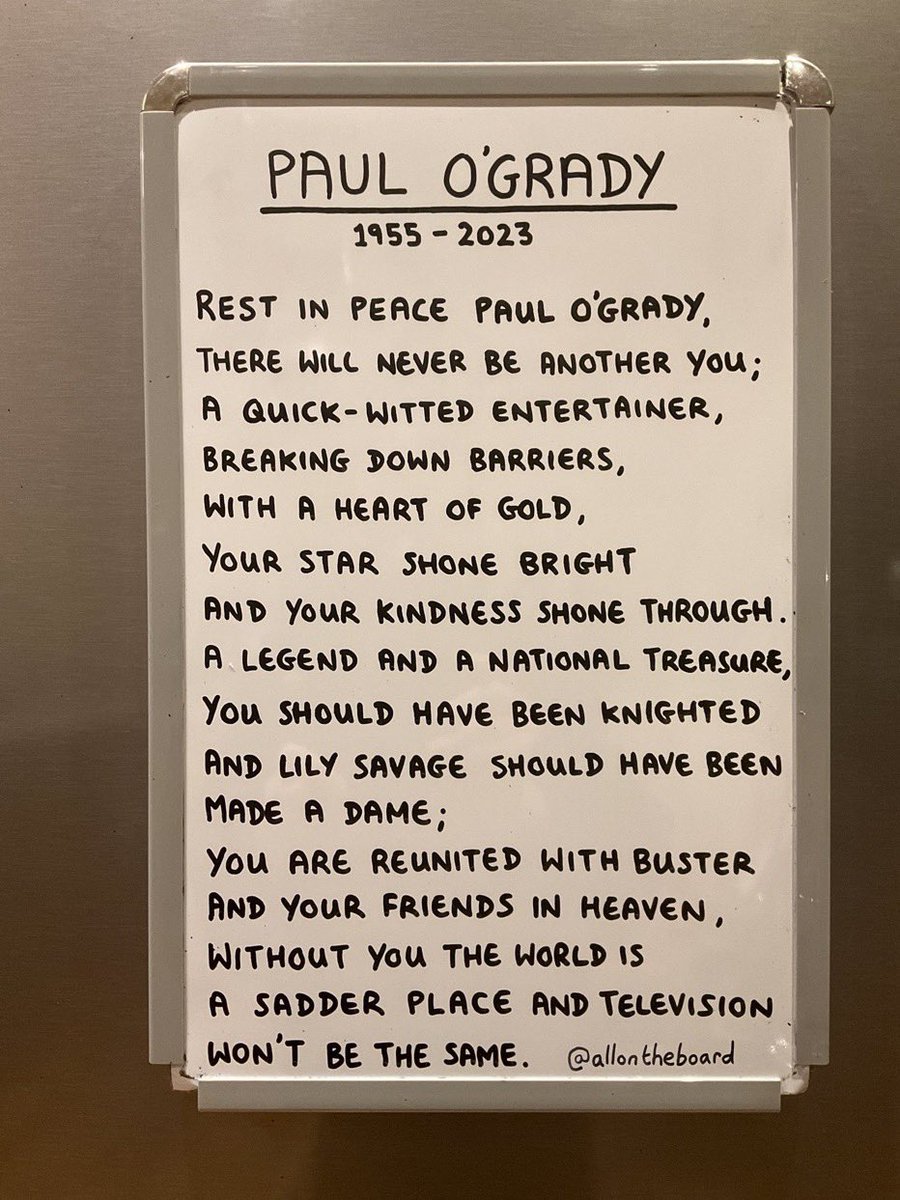 PAUL O'GRADY
1955 - 2023
REST IN PEACE PAUL O'GRADY,
THERE WILL NEVER BE ANOTHER YOU;
A QUICK-WITTED ENTERTAINER,
BREAKING DOWN BARRIERS,
WITH A HEART OF GOLD,
YOUR STAR SHONE BRIGHT
AND YOUR KINDNESS SHONE THROUGH.
A LEGEND AND A NATIONAL TREASURE,
YOU SHOULD HAVE BEEN KNIGHTED
AND LILY SAVAGE SHOULD HAVE BEEN
MADE A DAME;
YOU ARE REUNITED WITH BUSTER
AND YOUR FRIENDS IN HEAVEN,
WITHOUT YOU THE WORLD IS
A SADDER PLACE AND TELEVISION
WON'T BE THE SAME. @allontheboard